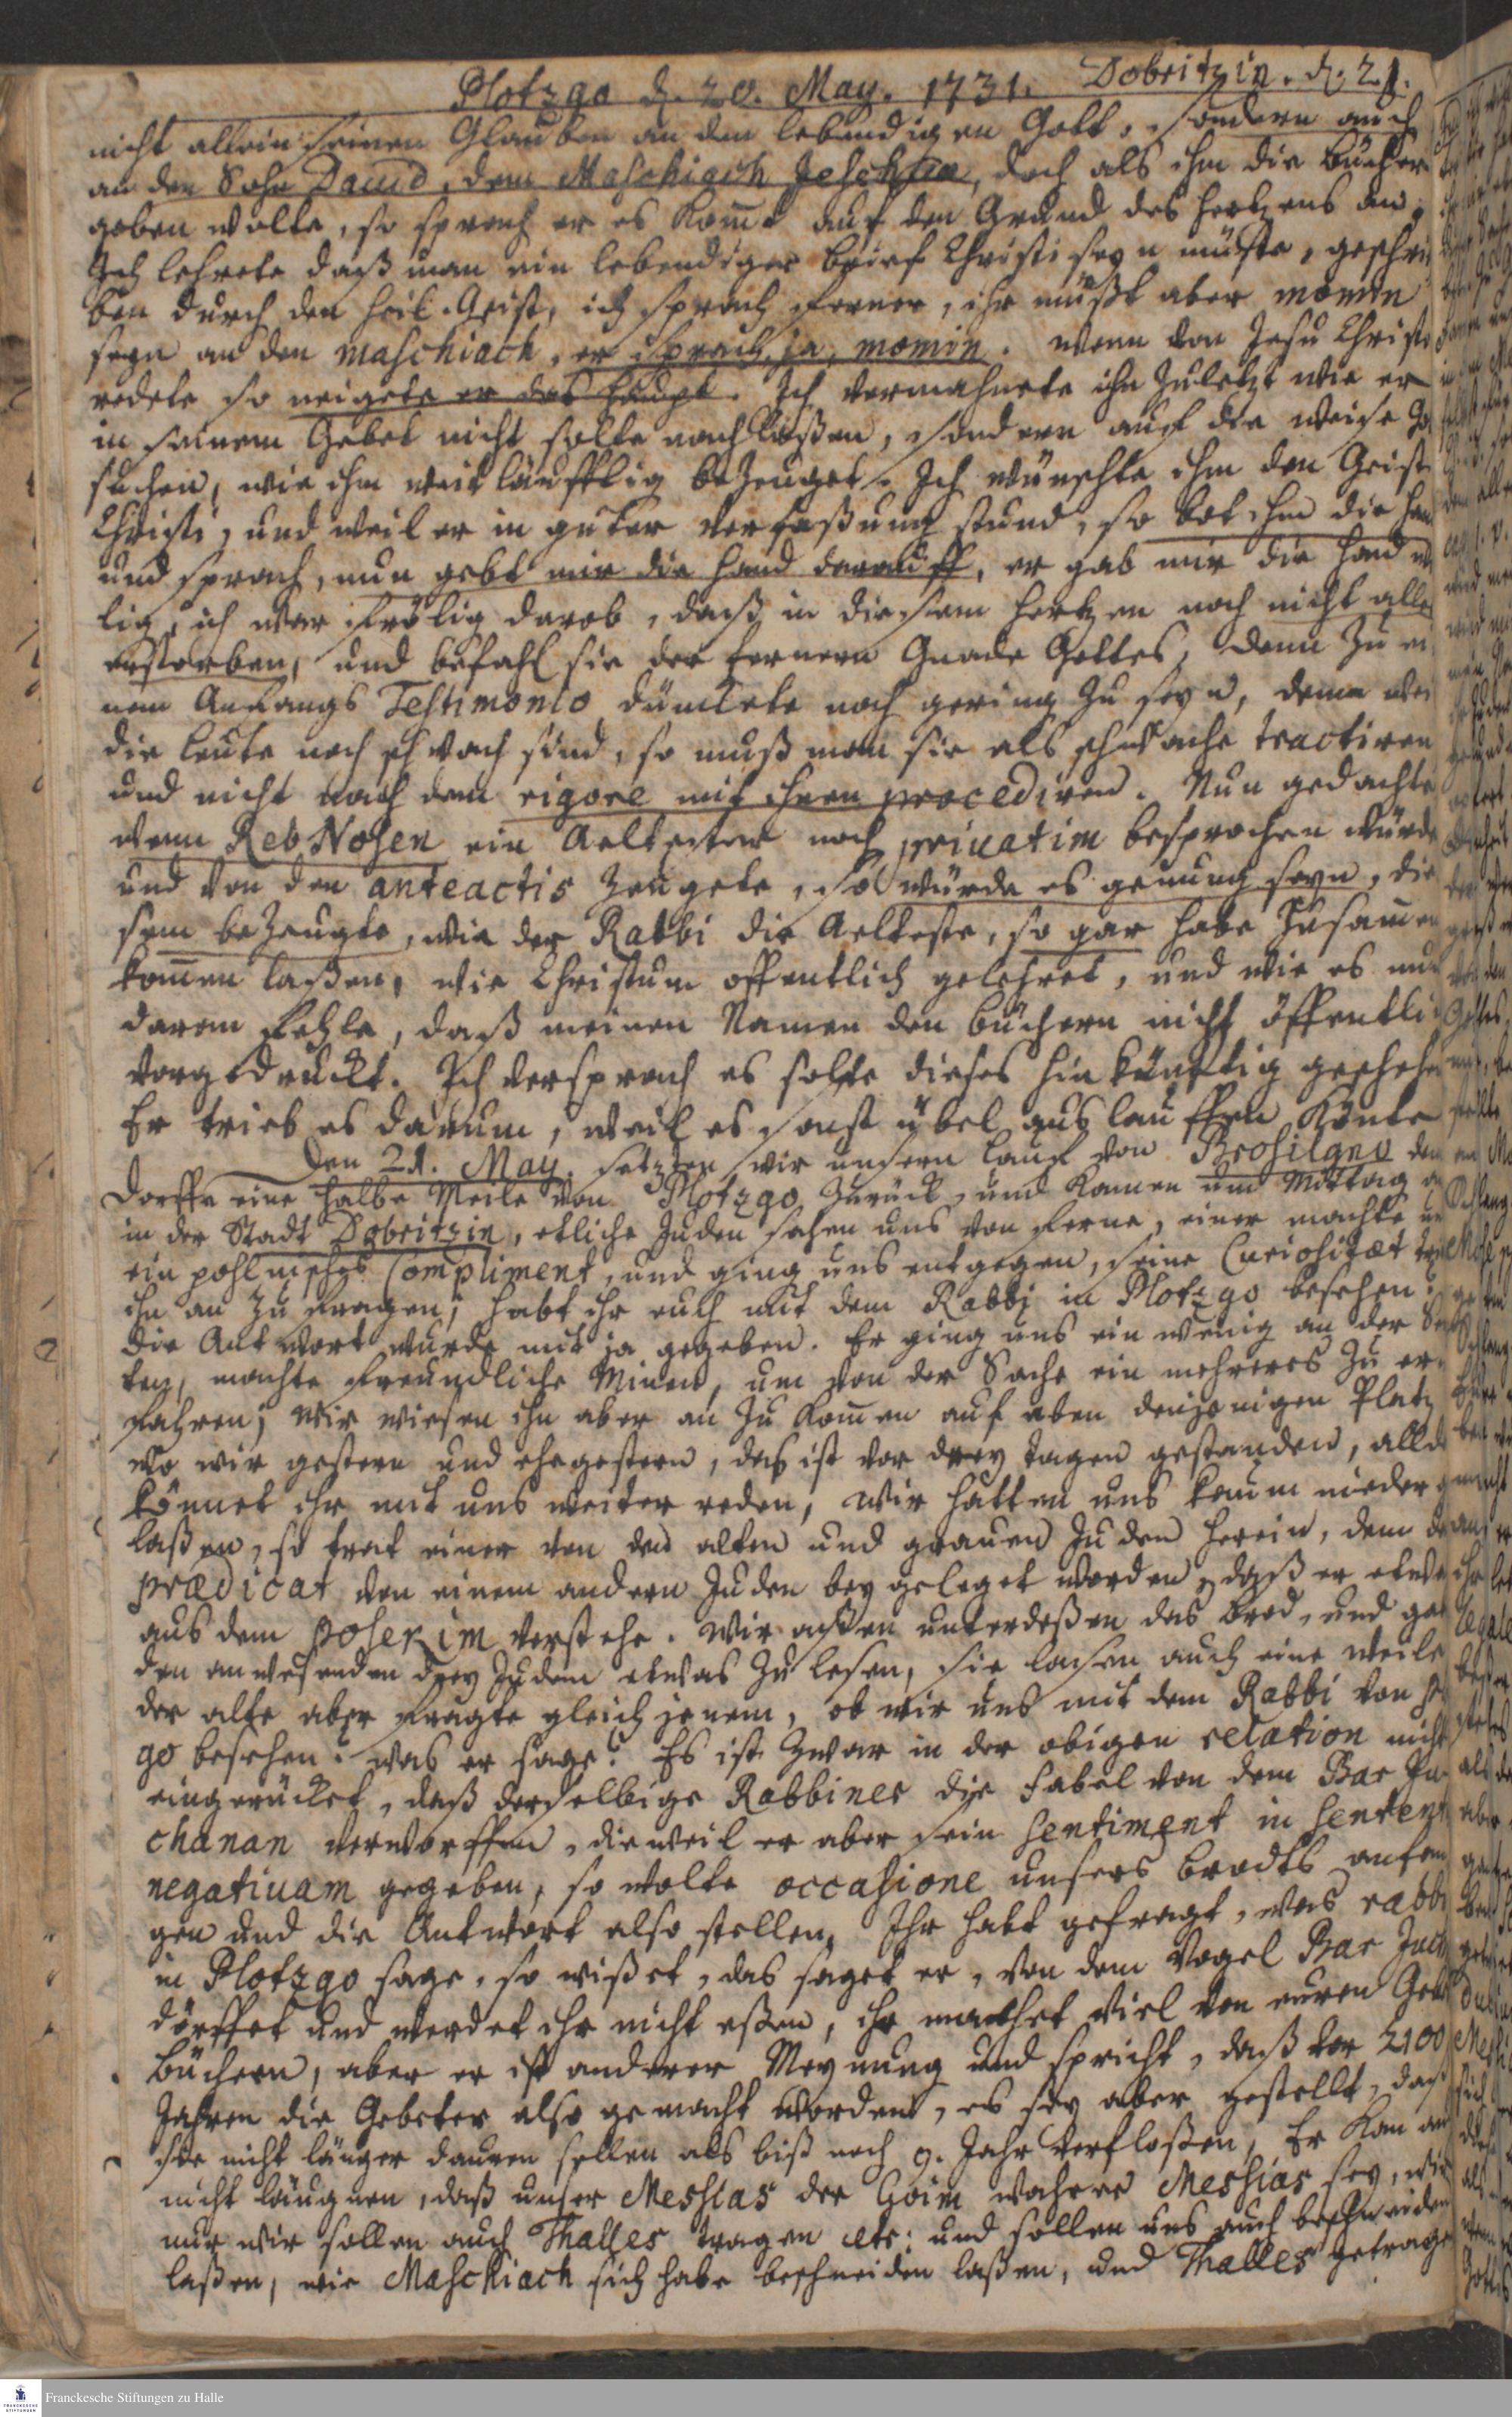 Plotzgo d. 20. May. 1731. Dobritzin. d. 21.
nicht allein seinen Glauben an den lebendigen Gott, sondern auch
an den Sohn David, dem Maschiach Jeschua, doch als ihm die Bücher
geben wolte, so sprach er es komt auf den Grund des Hertzens an;
Ich lehrete daß man ein lebendiger Brief Christi seyn müste, geschrie
ben durch den heil. Geist, ich sprach ferner, ihr müßt aber momin
seyn an den Maschiach, er sprach, ja, momin. Wenn von Jesu Christo
redete so neigete er das Haupt. Ich vermahnete ihn zuletzt wie er
in seinem Gebet nicht solte nachlaßen, sondern auf die Weise zu
suchen, wie ihm weitläufftig bezeuget. Ich wünschte ihm den Geist
Christi, und weil er in guter Verfaßung stund, so bot ihm die Hand
und sprach, nun gebt mir die Hand darauff, er gab mir die Hand
lig, ich war frölig darob, daß in diesem Hertzen noch nicht alles
erstorben, und befahl sie der fernern Gnade Gottes, denn zu ei
nem Anfangs Testimonio dünckete noch gering zu seyn, denn weil
die Leute noch schwach sind, so muß man sie als schwache tractiren
und nicht nach dem rigore mit ihnen procediren. Nun gedachte
wenn Reb Nosen ein Aeltester noch privatim besprochen würde
und von den anteactis zeugete, so würde es genung seyn, die
sem bezeugte, wie der Rabbi die Aelteste, so gar habe zusamen
komen laßen, wie Christum öffentlich gelehret, und wie es nur
daran fehle, daß meinen Namen den Büchern nicht öffentlich
vorgedruckt. Ich versprach es solte dieses hinkünftig geschehen
Er trieb es darum, weil es sonst übel auslauffen könte
Den 21. May. setzten wir unsern Lauf von Brosilano dem
Dorffe eine halbe Meile von Plotzgo zurück, und kamen um Mittag
in der Stadt Dobritzin, etliche Juden sahen uns von ferne, einer machte
ein pohlnisches Compliment, und ging uns entgegen, seine Curiositæt trieb
ihn an zu fragen; habt ihr euch mit dem Rabbi in Plotzgo besehen?
die Antwort wurde mit ja gegeben. Er ging uns ein wenig an der Sei
ten, machte freundliche Minen, um von der Sache ein mehreres zu er
fahren; wir wiesen ihn aber an zu komen auf eben denjenigen Platz
wo wir gestern und ehegestern, das ist vor drey Tagen gestanden, allda
könnet ihr mit uns weiter reden, wir hatten uns kaum nieder ge
laßen, so trat einer von den alten und grauen Juden herein, dem das
prædicat von einem andern Juden beygeleget worden, daß er etwas
aus dem poserim verstehe. Wir aßen unterdeßen das Brod, und gaben
den anwesenden drey Juden etwas zu lesen, sie lasen auch eine weile
der alte aber fragte gleich jenem, ob wir uns mit dem Rabbi von Plotz
go besehen? was er sage? Es ist zwar in der obigen relation nicht
eingerücket, daß derselbige Rabbiner die Fabel von dem Bar Ju
chanan verworffen, dieweil er aber sein sentiment in sentent
negativam gegeben, so wolte occasione unsers Brodts anfan
gen und die Antwort also stellen, Ihr habt gefragt, was rabbi
in Plotzgo sage, so wißet, das saget er, von dem Vogel Bar Juch
dörffet und werdet ihr nicht eßen, ihr machet viel von euren Gebet
Büchern, aber er ist anderer Meynung und spricht, daß vor 2100
Jahren die Gebeter also gemacht worden, es sey aber gestellt, daß
sie nicht länger dauren sollen als biß noch 9. Jahr verfloßen, Er kan auch
nicht läugnen, daß unser Messias der Goim wahrer Messias sey,
nur wir sollen auch Thalles tragen etc: und sollen uns auch beschneiden
laßen, wie Maschiach sich habe beschneiden laßen, und Thalles getragen
Franckesche Stiftungen zu Halle